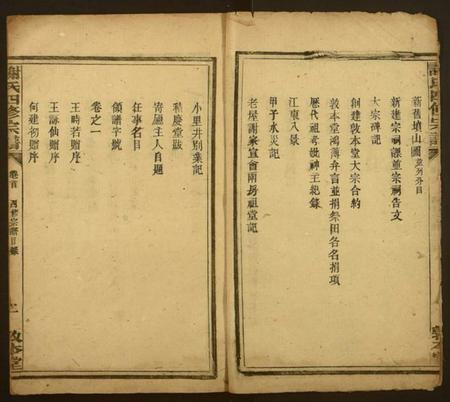 新舊墳山圖
新建宗祠記並宗祠告文
大宗祠記
創建敦本堂大宗合約
敦本堂鴻薄弁言並捐祭田各名捐項
歷代祖考妣神主總錄
江東八景
甲子水災記
老屋謝家宜會兩房祖堂記
小里井別業記
積慶堂跋
寄廬主人自題
任事名目
領譜字號
卷之一
王時若贈序
王詠仙贈序
何建初贈序
謝氏四修宗譜
卷首
四修宗譜目錄
敦本堂